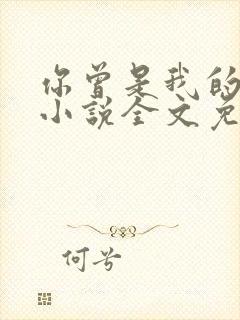 你曾是我的
小说全文免
何兮